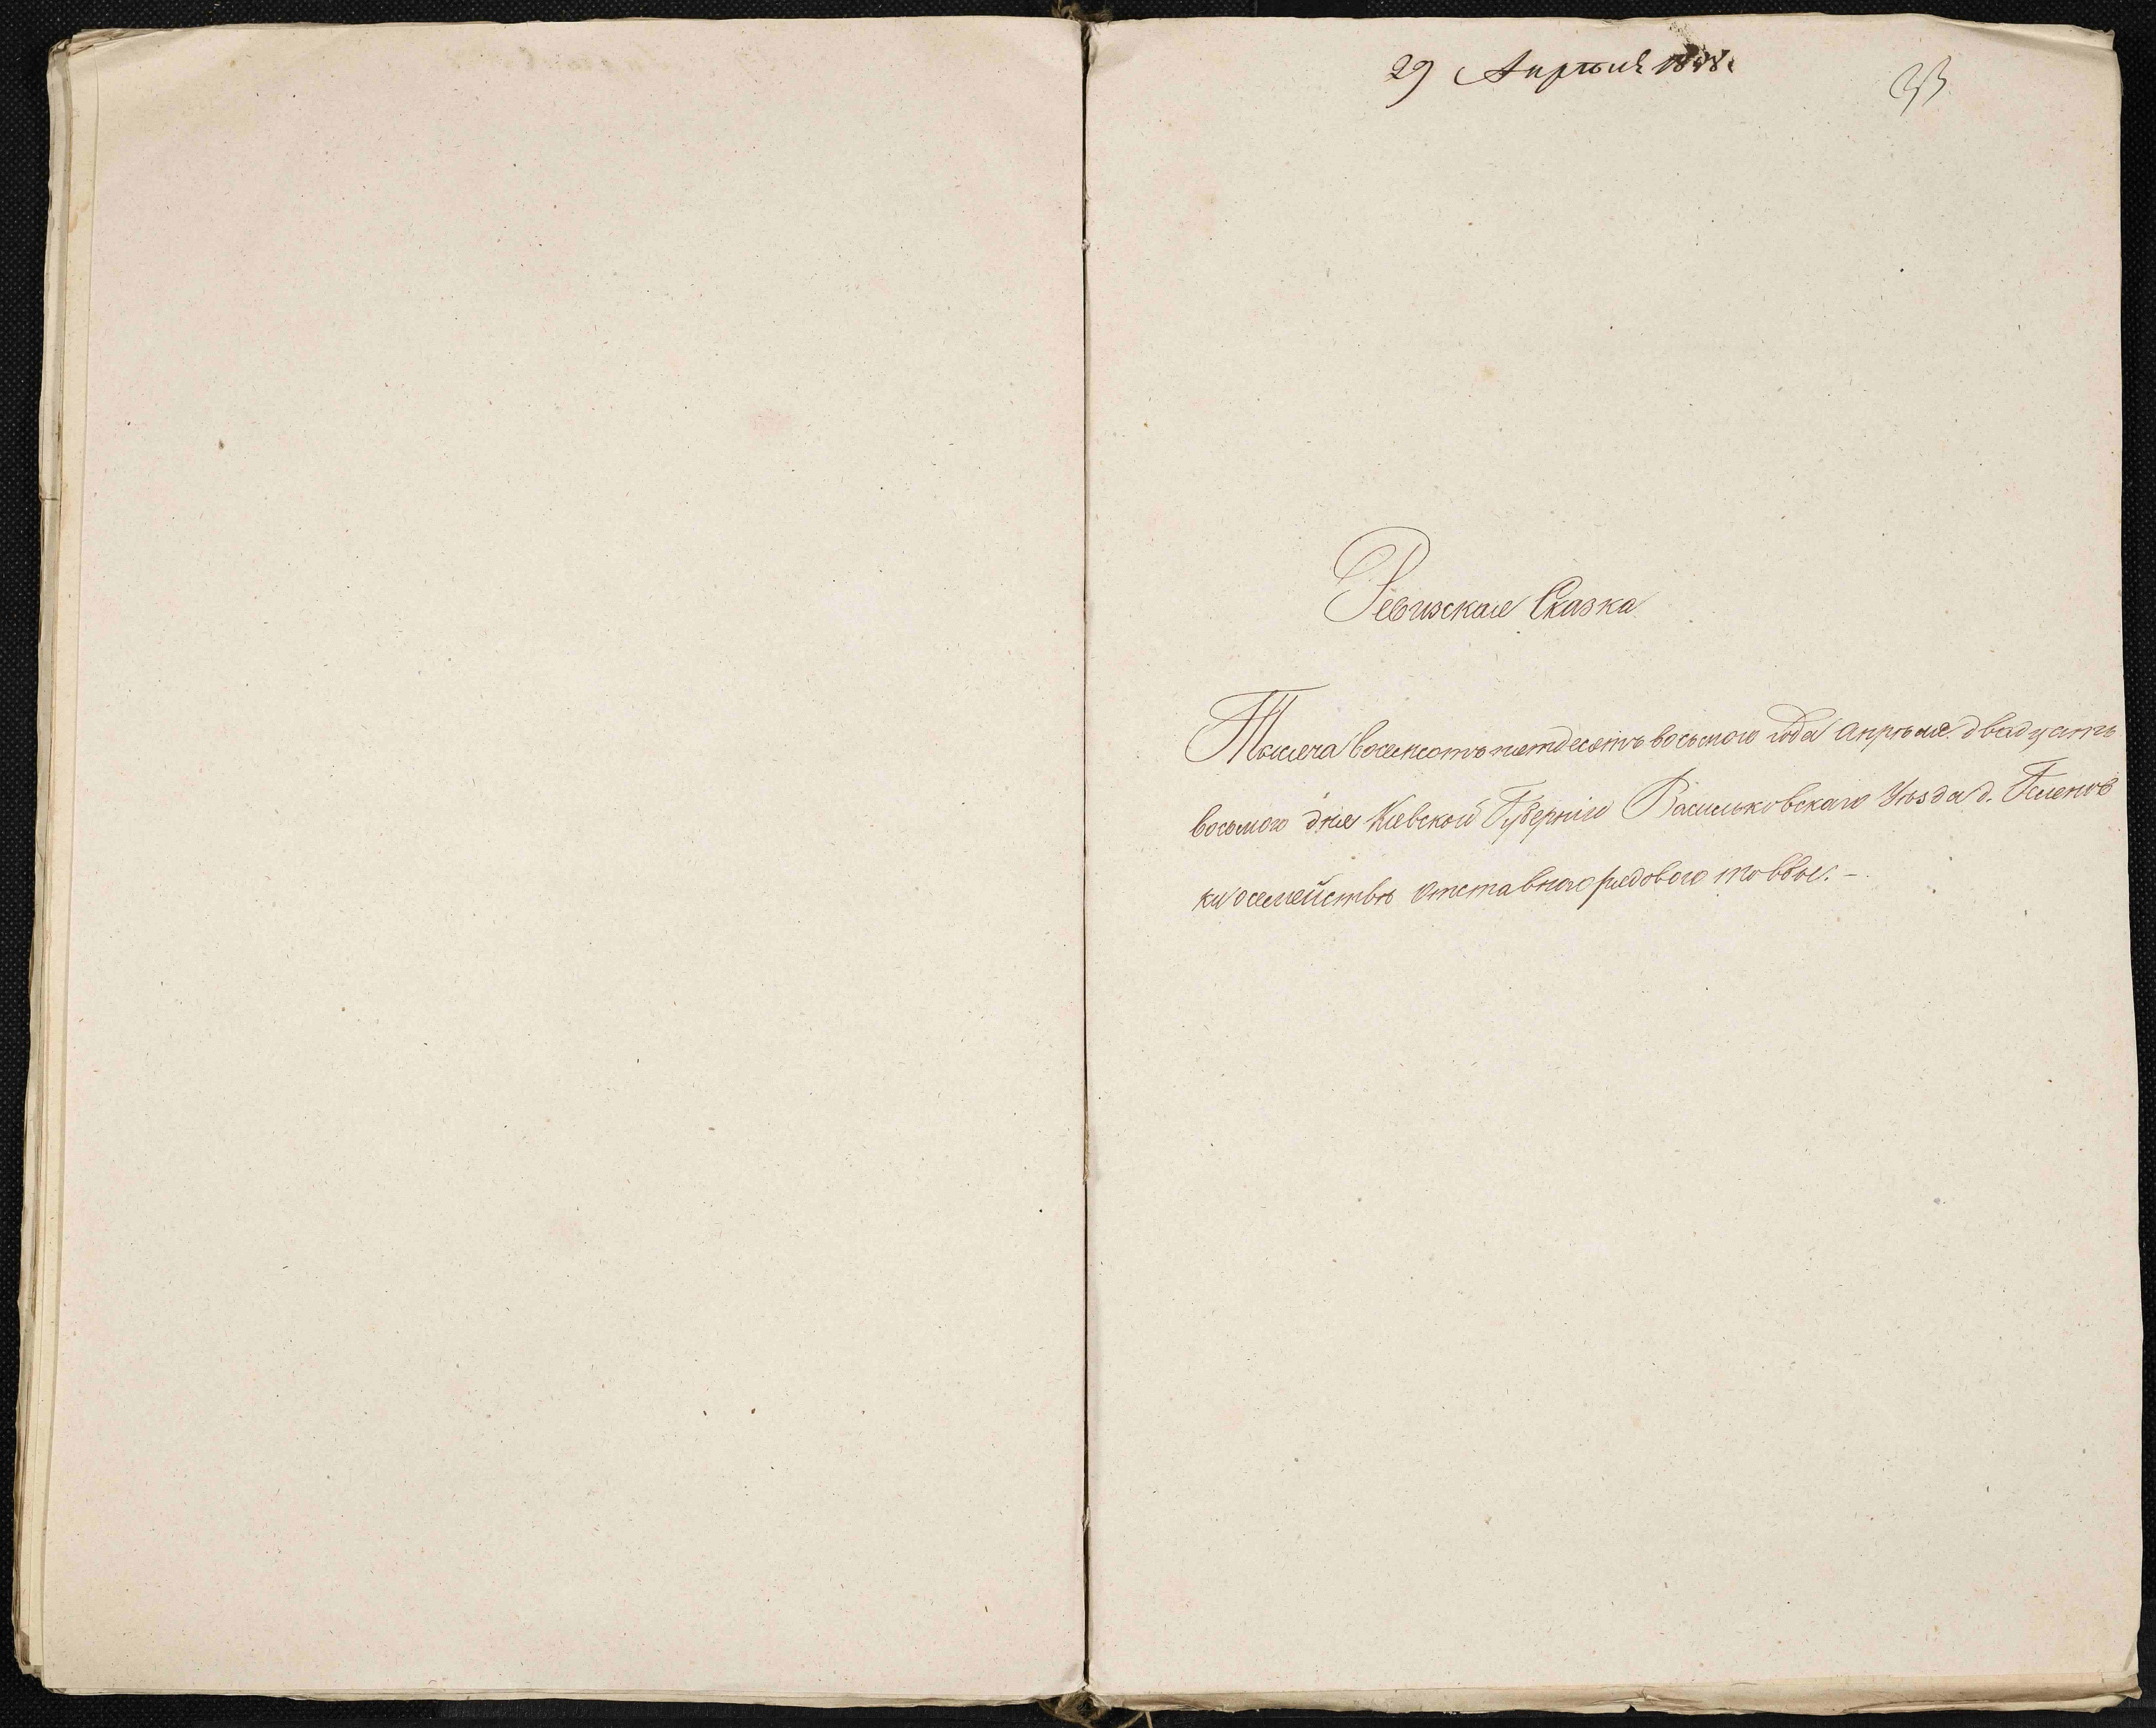 29 Апрѣля 1858.
Ревизская Сказка
Тысяча восемсотъ пятдесятъ восьмого года апрѣля двадцать
восьмого дня Кіевской Губерніи Васильковскаго Уѣзда д.
ки о семействѣ отставнаго рядового